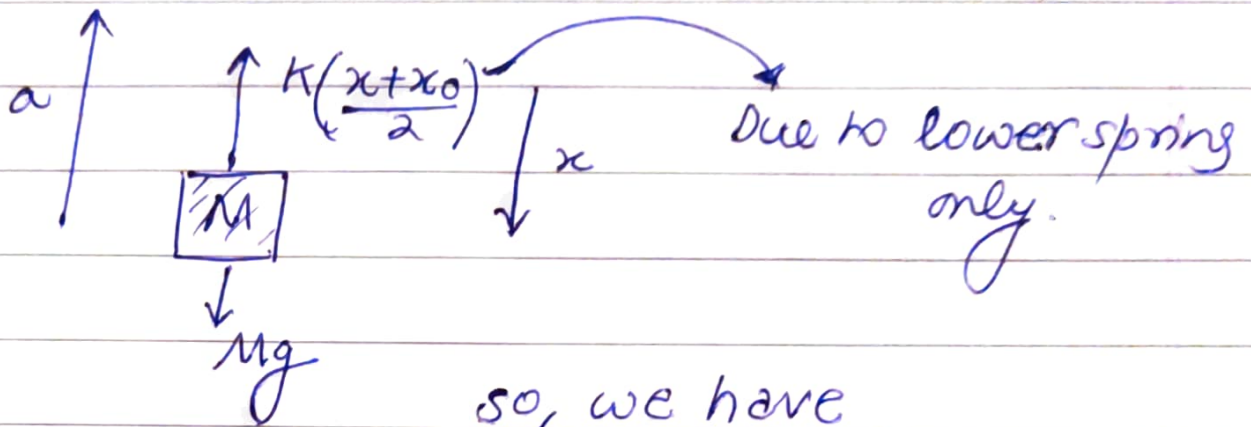 a
K(x+x₀/2)
Due to lower spring
only.
x
M
Mg
so, we have